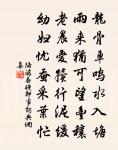 龍骨車鳴水入塘
雨來猶可望豐穰
老農愛犢行泥緩
幼婦忧蚕采葉忙
陸游春晚即事詩典
集